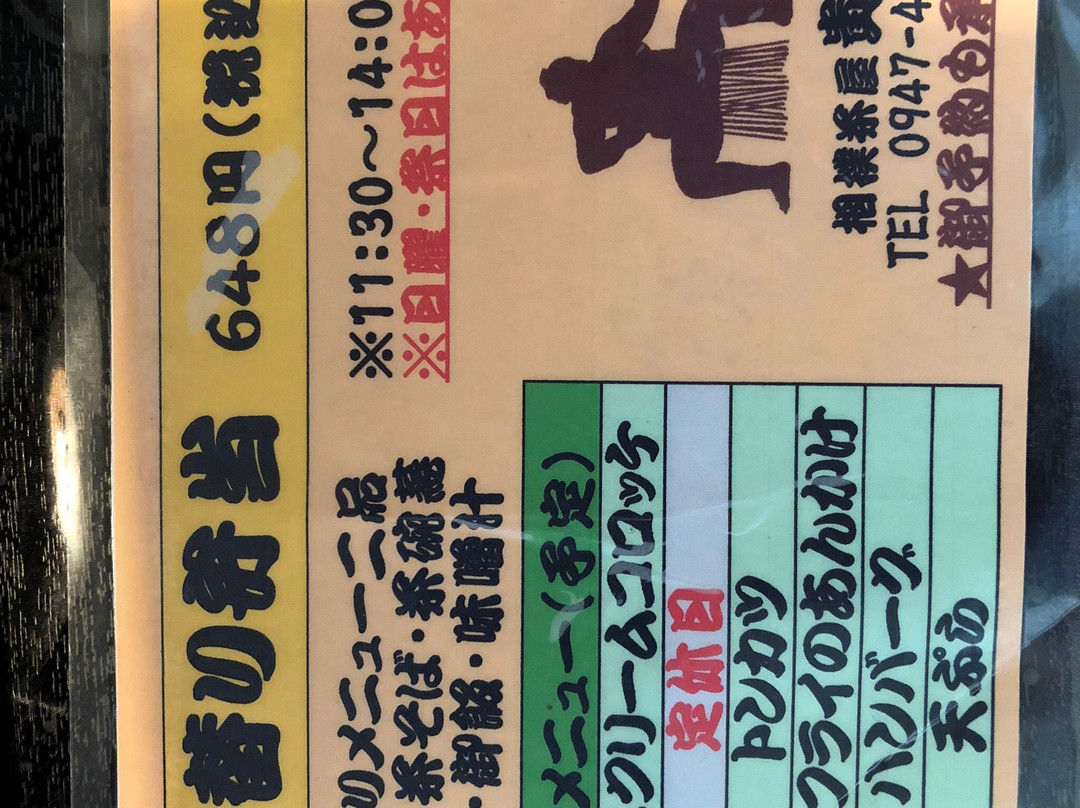 替り弁当 648円(税込
りメニュー二品
茶そば・茶碗蒸
・御飯・味噌汁
※11:30～14:0
※日曜・祭日はあ
メニュー(予定)
クリームコロッケ
定休日
トンカツ
フライのあんかけ
ハンバーグ
天ぷら
相撲茶屋貴
TEL 0947-4
★御予約も承